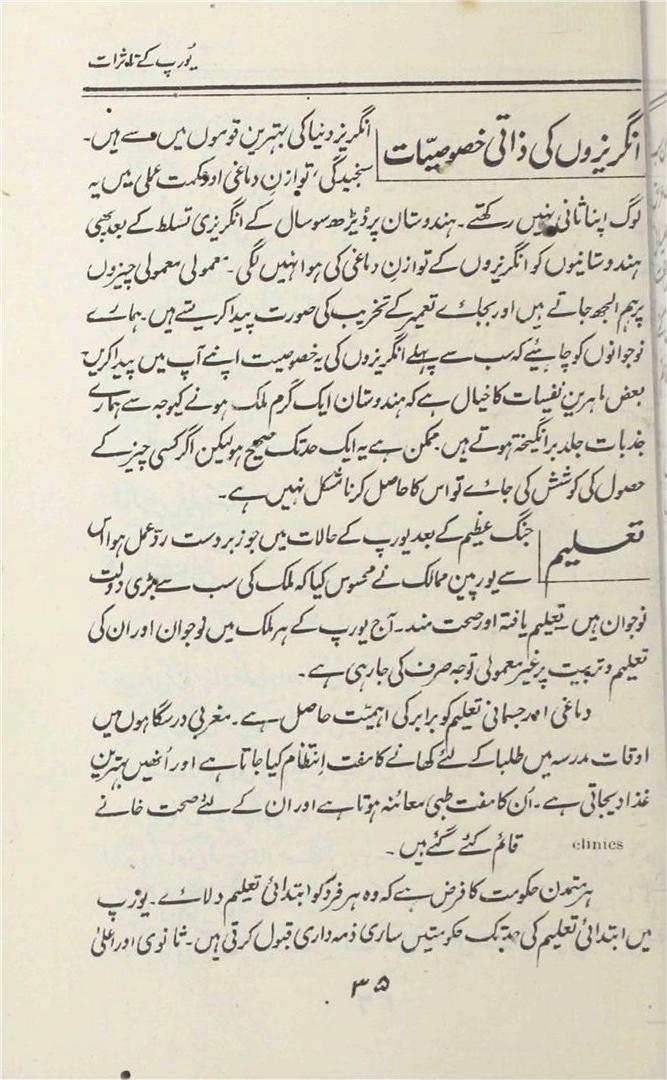 یورپ کے تاثرات
انگریزوں کی ذاتی خصوصیّات
انگریز دنیا کی بہترین قوموں میں سے ہیں۔
سنجیدگی، توازنِ دماغی اور حکمت عملی میں یہ
لوگ اپنا ثانی نہیں رکھتے۔ ہندوستان پر ڈیڑھ سو سال کے انگریزی تسلط کے بعد بھی
ہندوستانیوں کو انگریزوں کے توازنِ دماغی کی ہوا نہیں لگی۔ معمولی معمولی چیزوں
پر ہم الجھ جاتے ہیں اور بجائے تعمیر کے تخریب کی صورت پیدا کرتے ہیں۔ ہمارے
نوجوانوں کو چاہیئے کہ سب سے پہلے انگریزوں کی یہ خصوصیت اپنے آپ میں پیدا کریں
بعض ماہرین نفسیات کا خیال ہے کہ ہندوستان ایک گرم ملک ہونے کیوجہ سے ہمارے
جذبات جلد برانگیختہ ہوتے ہیں۔ ممکن ہے یہ ایک حد تک صحیح ہو لیکن اگر کسی چیز کے
حصول کی کوشش کی جائے تو اس کا حاصل کرنا مشکل نہیں ہے۔
تعلیم
جنگ عظیم کے بعد یورپ کے حالات میں جو زبردست ردّعمل ہوا اس
سے یورپین ممالک نے محسوس کیا کہ ملک کی سب سے بڑی دولت
نوجوان ہیں۔ تعلیم یافتہ اور صحت مند۔ آج یورپ کے ہر ملک میں نوجوان اور ان کی
تعلیم و تربیت پر غیر معمولی توجہ صرف کی جا رہی ہے۔
دماغی اور جسمانی تعلیم کو برابر کی اہمیّت حاصل ہے۔ مغربی درسگاہوں میں
اوقات مدرسہ میں طلبا کے لئے کھانے کا مفت اِنتظام کیا جاتا ہے اور اُنھیں بہترین
غذا دیجاتی ہے۔ اُن کا مفت طبی معائنہ ہوتا ہے اور ان کے لئے صحت خانے
clinics قائم کئے گئے ہیں۔
ہر متمدن حکومت کا فرض ہے کہ وہ ہر فرد کو ابتدائی تعلیم دلائے۔ یورپ
میں ابتدائی تعلیم کی حد تک حکومتیں ساری ذمہ داری قبول کرتی ہیں۔ ثانوی اور اعلیٰ
۳۵